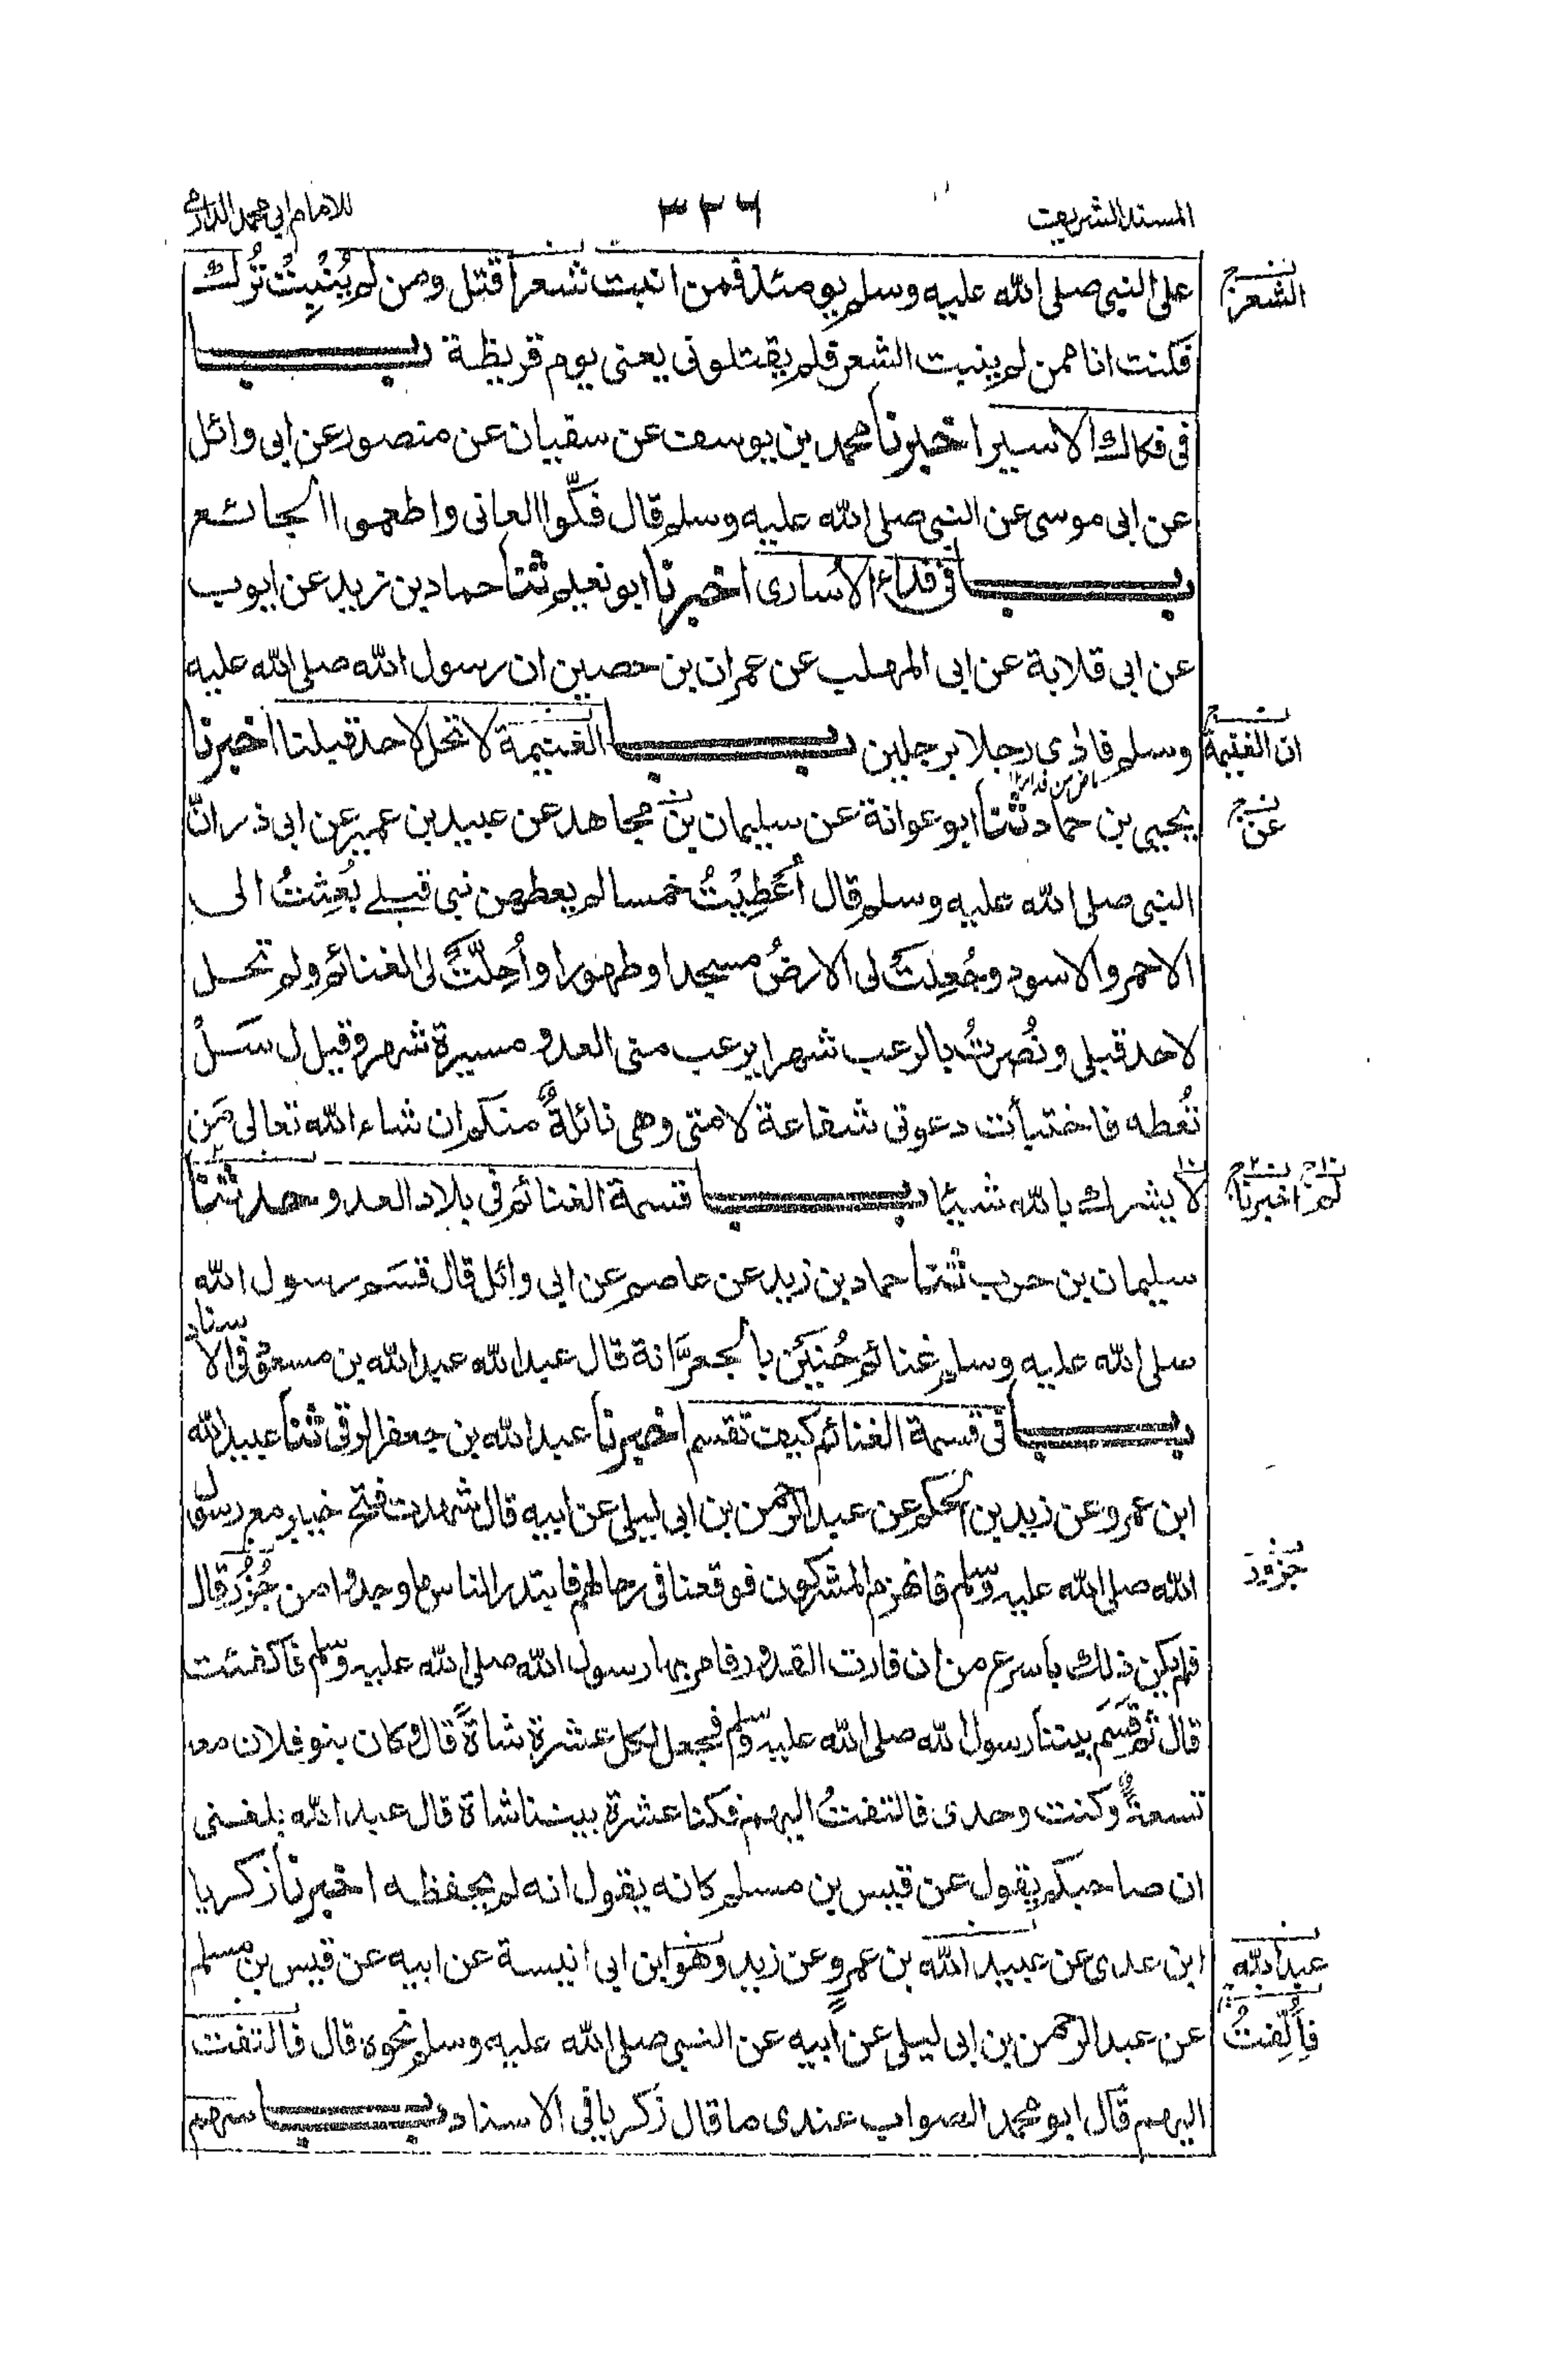 المسند الشريف
٣٢٦
للامام ابى محمد الدارمى
على النبى صلى الله عليه وسلم يومئذ فمن انبت شعرا قتل ومن لم يُنْبِتْ تُرك
الشعر
فكنت انا ممن لم ينبت الشعر فلم يقتلونى يعنى يوم قريظة باب
فى فكاك الاسير اخبرنا محمد بن يوسف عن سفيان عن منصور عن ابى وائل
عن ابى موسى عن النبى صلى الله عليه وسلم قال فكّوا العانى واطعموا الجائع
باب فى فداء الأسارى اخبرنا ابو نعيم ثنا حماد بن زيد عن ايوب
عن ابى قلابة عن ابى المهلب عن عمران بن حصين ان رسول الله صلى الله عليه
وسلم فادى رجلا برجلين باب الغنيمة لا تحل لاحد قبلنا اخبرنا
ان الغنيمة
يحيى بن حماد ثنا ابو عوانة عن سليمان بن مجاهد عن عبيد بن عمير عن ابى ذر انّ
عن
النبى صلى الله عليه وسلم قال أُعْطِيْتُ خمسا لم يعطهن نبى قبلے بُعِثتُ الى
الاحمر والاسود وجُعِلَتْ لى الارضُ مسجدا وطهورا واُحِلّتْ لى الغنائم ولم تحل
لاحد قبلى ونُصِرتُ بالرعب شهرا يرعب منى العدو مسيرة شهر وقيل لى سَلْ
تُعطه فاختبأت دعوتى شفاعة لامتى وهى نائلةٌ منكم ان شاء الله تعالى مَن
لا يشرك بالله شيئا باب قسمة الغنائم فى بلاد العدو حدثنا
لم اخبرنا
سليمان بن حرب ثنا حماد بن زيد عن عاصم عن ابى وائل قال قسَم رسول الله
صلى الله عليه وسلم غنائم حُنَيْن بالجعرّانة قال عبد الله عبد الله بن مسعود فى الاسناد
باب فى قسمة الغنائم كيف تقسم اخبرنا عبد الله بن جعفر الرقى ثنا عبيد الله
ابن عمرو عن زيد بن الحكم عن عبد الرحمن بن ابى ليلى عن ابيه قال شهدت فتح خيبر مع رسول
الله صلى الله عليه وسلم فانهزم المشركون فوقعنا فى رحالهم فابتدر الناس ما وجدوا من جُزُرٍ قال
جزور
فلم يكن ذلك باسرع من ان فارت القدور فامر بها رسول الله صلى الله عليه وسلم فاكفئت
قال ثم قَسَمَ بيننا رسول الله صلى الله عليه وسلم فجعل لكل عشرة شاةً قال وكان بنو فلان معه
تسعةٌ وكنت وحدى فالتفتُ اليهم فكنا عشرة بيننا شاة قال عبد الله بلغنى
ان صاحبكم يقول عن قيس بن مسلم كانه يقول انه لم يحفظه اخبرنا زكريا
ابن عدى عن عبيد الله بن عمرو عن زيد وهو ابن ابى انيسة عن ابيه عن قيس بن مسلم
عبد الله
عن عبد الرحمن بن ابى ليلى عن أبيه عن النبى صلى الله عليه وسلم نحوه قال فالتفت
فأُلّفتُ
اليهم قال ابو محمد الصواب عندى ما قال زكريا فى الاسناد باب سهم